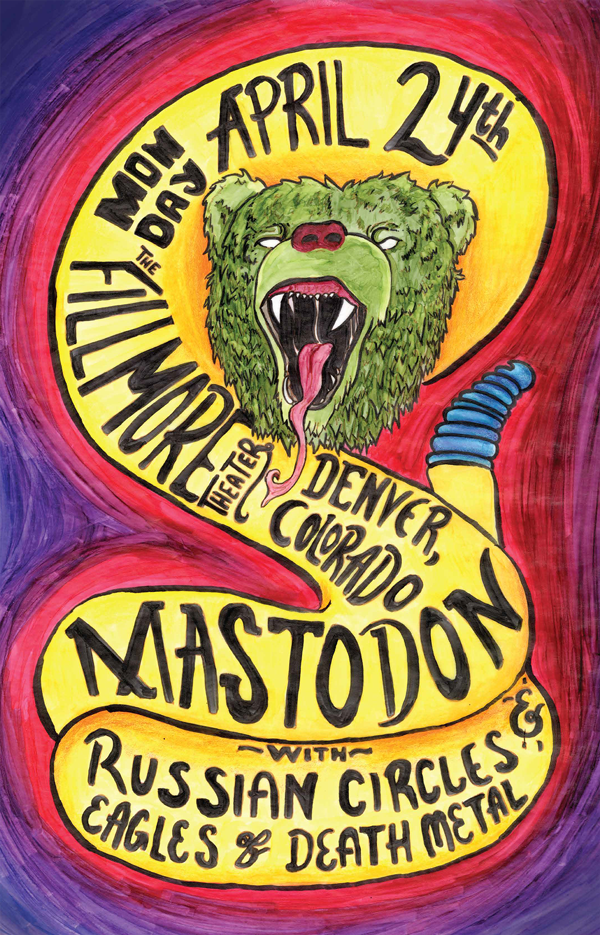 MONDAY
APRIL 24th
THE
FILLMORE
THEATER
DENVER,
COLORADO
MASTODON
~WITH~
RUSSIAN CIRCLES &
EAGLES of DEATH METAL